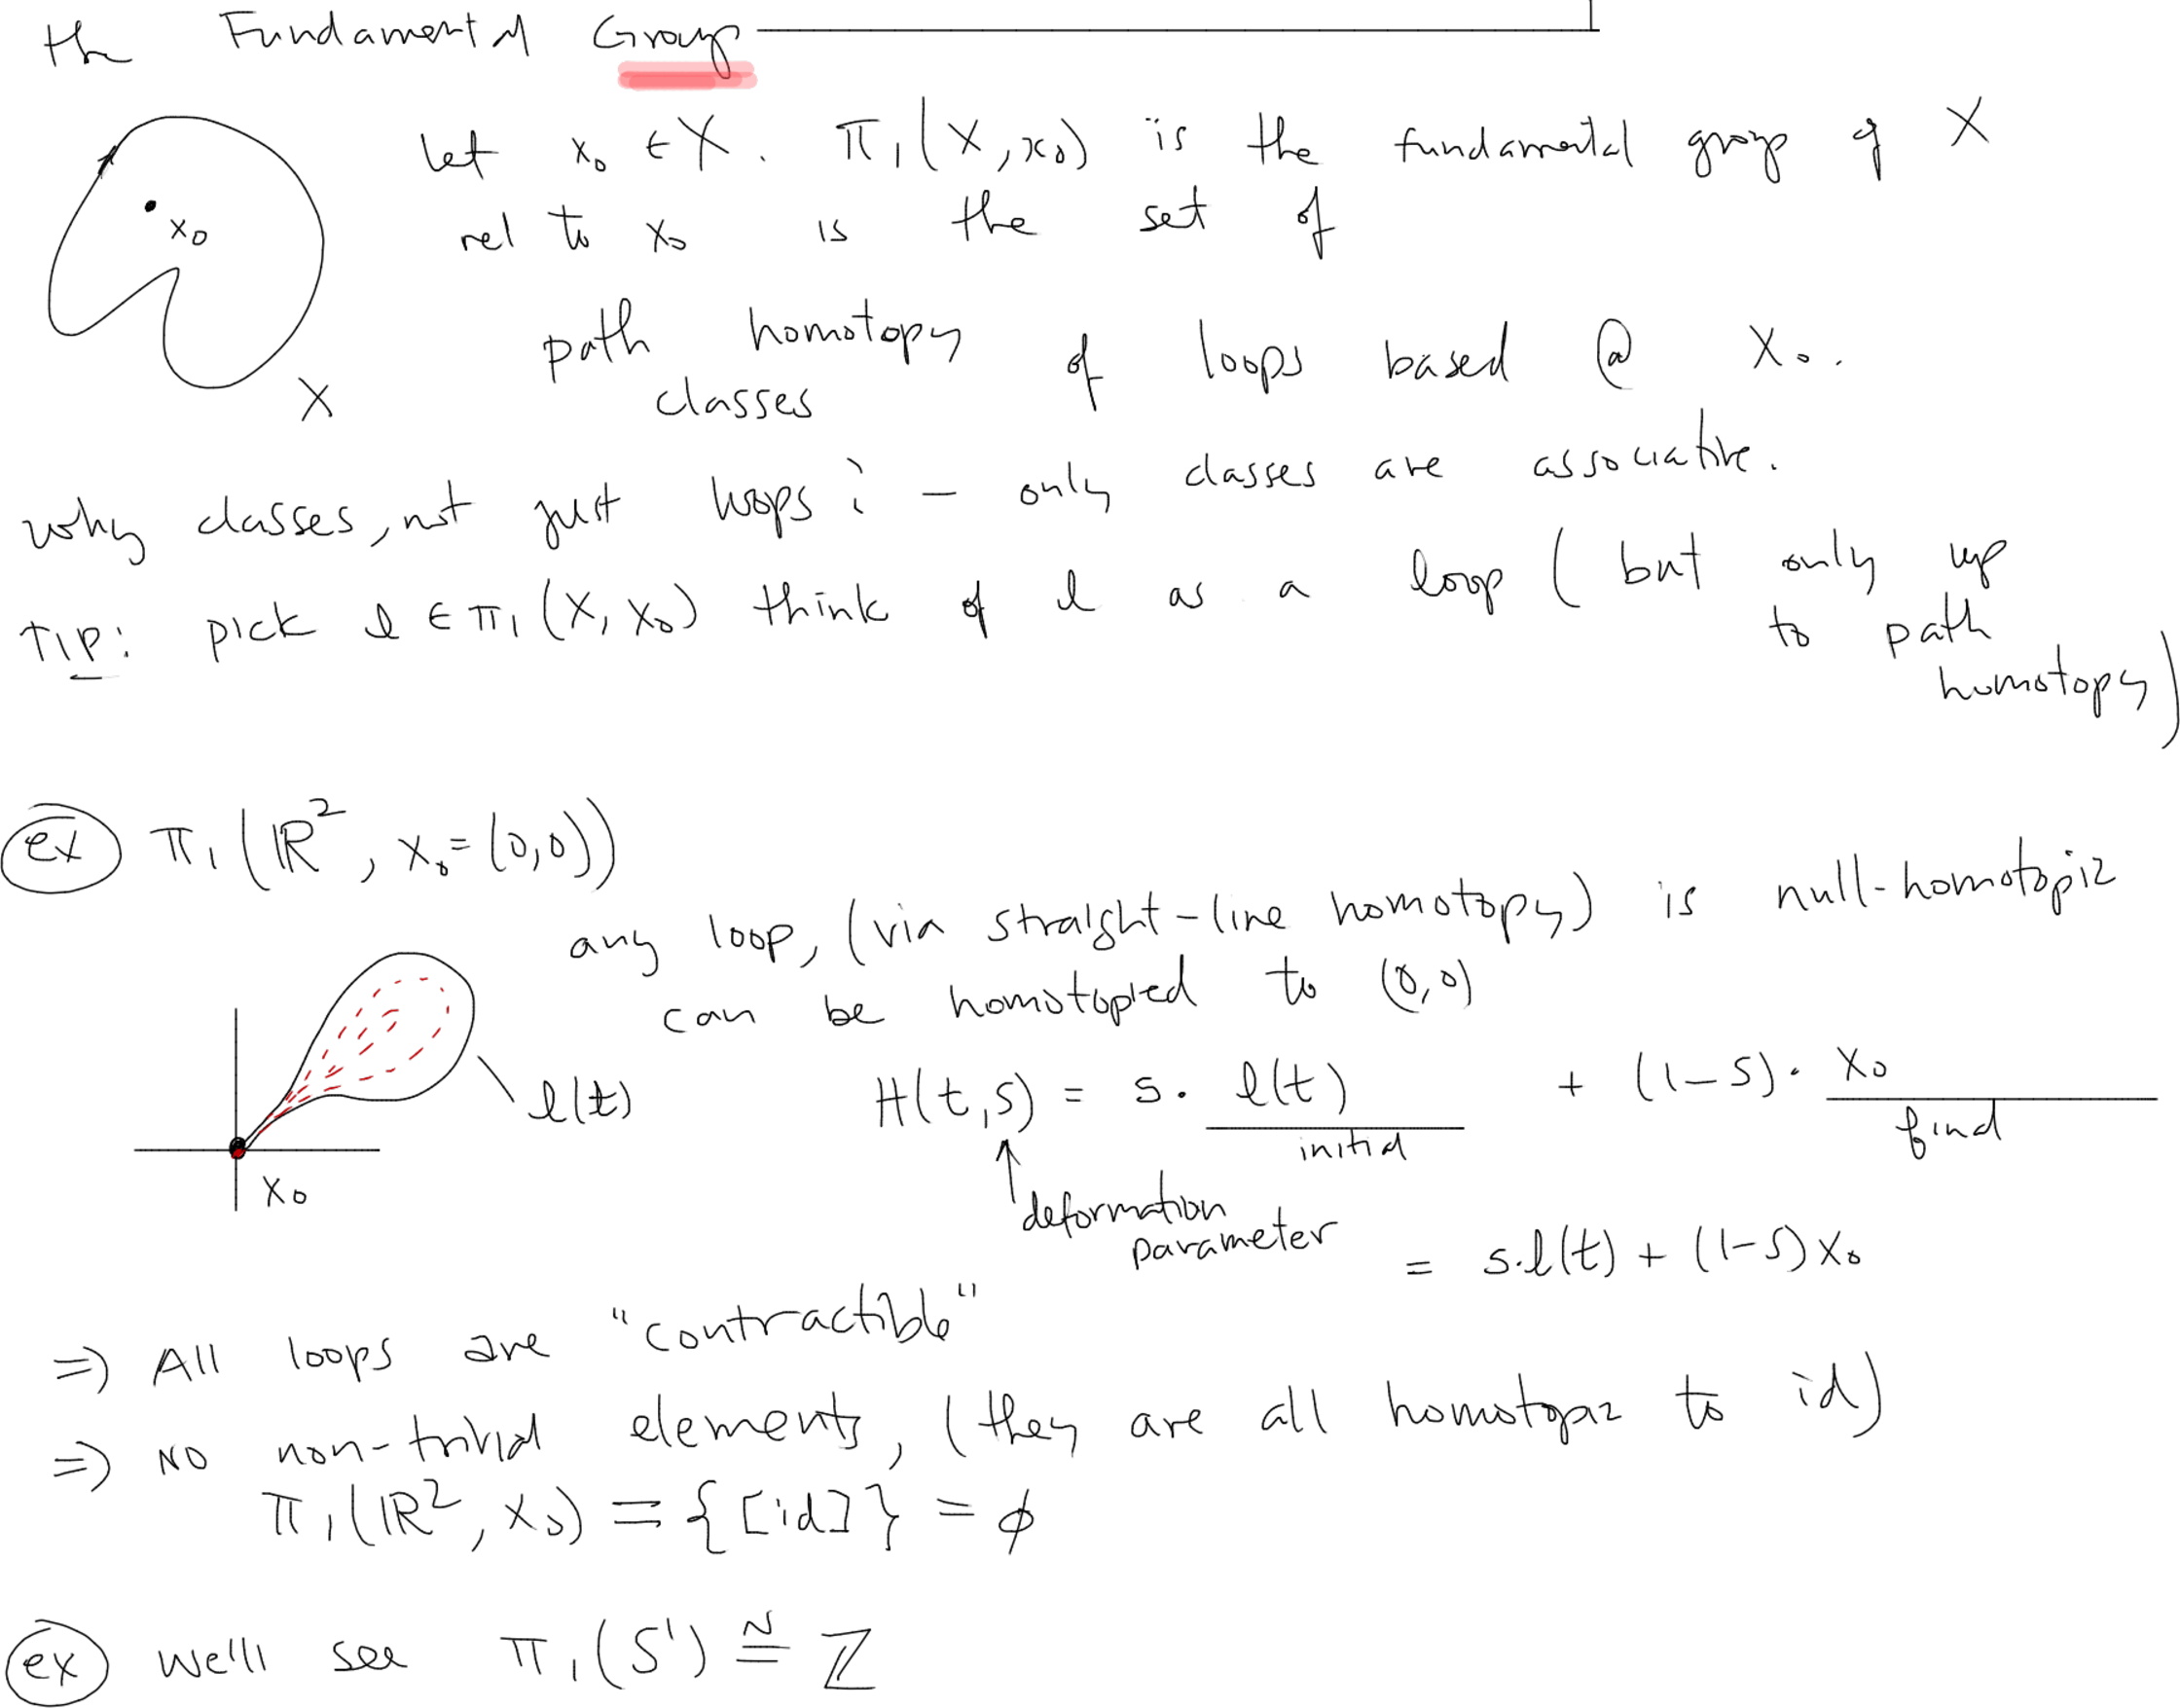 the Fundamental Group
Let x₀ ∈ X. π₁(X, x₀) is the fundamental group of X
x₀
rel to x₀ is the set of
path homotopy of loops based @ x₀.
classes
X
why classes, not just loops? - only classes are associative.
TIP: pick l ∈ π₁(X, x₀) think of l as a loop (but only up
to path
homotopy)
ex π₁(ℝ², x₀=(0,0))
any loop, (via straight-line homotopy) is null-homotopic
can be homotopied to (0,0)
l(t)
H(t,s) = s · l(t) + (1-s) · x₀
initial final
x₀
deformation
parameter
= s·l(t) + (1-s)x₀
=) All loops are "contractible"
=) NO non-trivial elements, (they are all homotopic to id)
π₁(ℝ², x₀) = {[id]} = φ
ex We'll see π₁(S¹) ≅ ℤ